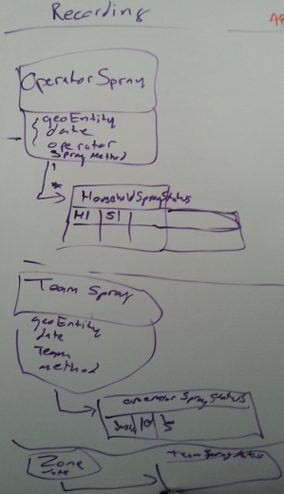 Recording
Operator Spray
geoEntity
date
operator
Spray Method
1
*
HouseholdSprayStatus
H1 S1
Team Spray
geoEntity
date
Team
method
operatorSprayStatus
10 5
Zone
date
teamSprayStatus